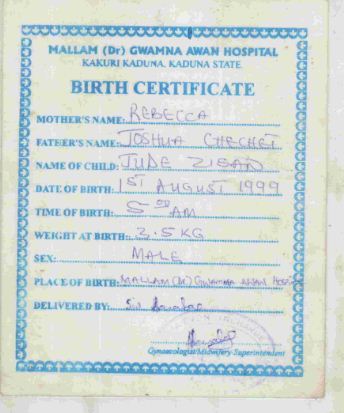 MALLAM (Dr) GWAMNA AWAN HOSPITAL
KAKURI KADUNA, KADUNA STATE
BIRTH CERTIFICATE
MOTHER'S NAME: REBECCA
FATHER'S NAME: JOSHUA CHECHET
NAME OF CHILD: JUDE
DATE OF BIRTH: 1ST AUGUST 1999
TIME OF BIRTH: 5 00 AM
WEIGHT AT BIRTH: 3.5 KG
SEX: MALE
PLACE OF BIRTH: MALLAM (Dr) GWAMNA AWAN
DELIVERED BY:
Gynaecologist/Midwifery Superintendent